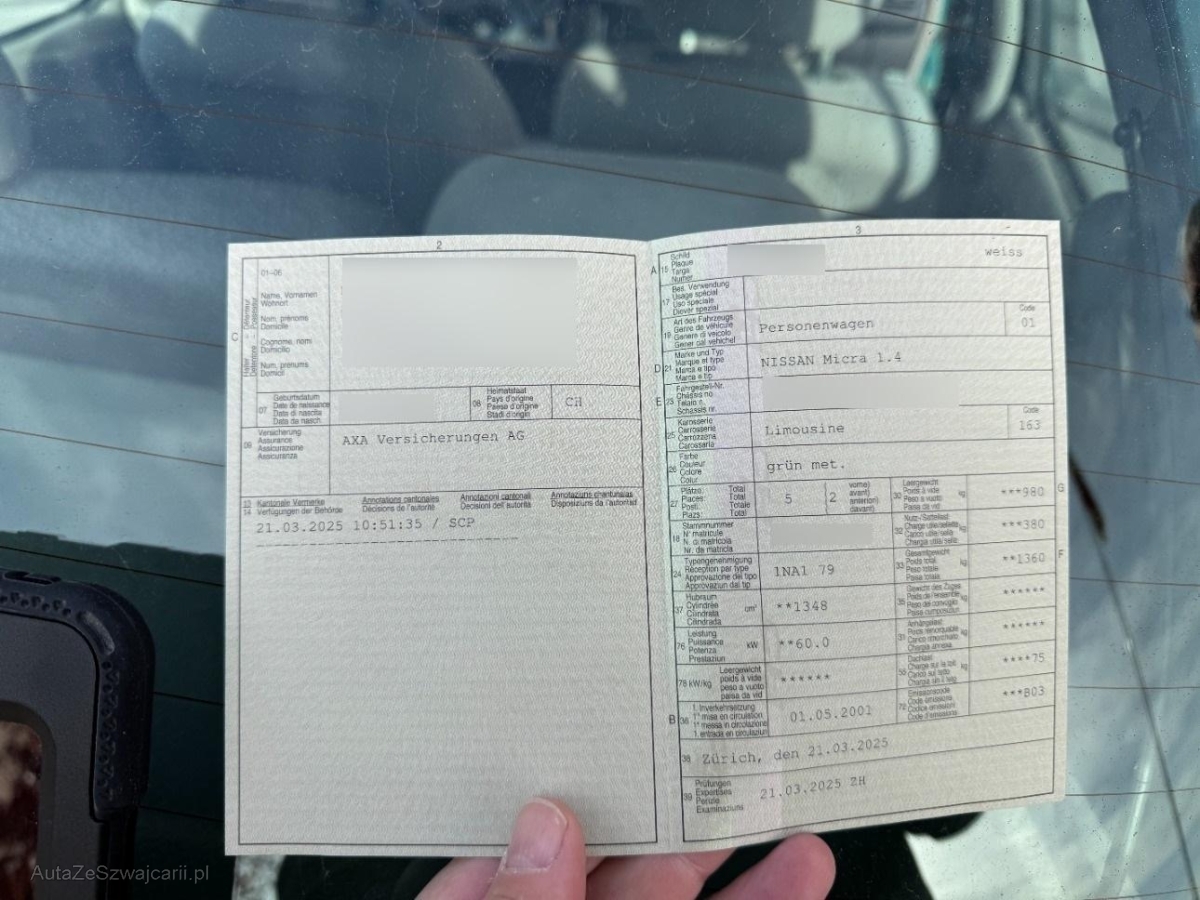 2
01-06
Name, Vornamen
Wohnort
Nom, prénoms
Domicile
Cognome, nomi
Domicilio
Num, prenums
Domicil
C
07
Geburtsdatum
Date de naissance
Data di nascita
Data da nasch.
08
Heimatstaat
Pays d'origine
Paese d'origine
Stadi d'origin
CH
09
Versicherung
Assurance
Assicurazione
Assicuranza
AXA Versicherungen AG
13
14
Kantonale Vermerke
Verfügungen der Behörde
Annotations cantonales
Décisions de l'autorité
Annotazioni cantonali
Decisioni dell'autorità
Annotaziuns chantunalas
Disposiziuns da l'autoritad
21.03.2025 10:51:35 / SCP
3
A
15
Schild
Plaque
Targa
Numer
weiss
17
Bes. Verwendung
Usage spécial
Uso speciale
Diever spezial
19
Art des Fahrzeugs
Genre de véhicule
Genere di veicolo
Gener dal vehichel
Personenwagen
Code
01
D
21
Marke und Typ
Marque et type
Marca e tipo
Marca e tip
NISSAN Micra 1.4
E
23
Fahrgestell-Nr.
Châssis no
Telaio n.
Schassis nr.
25
Karosserie
Carrosserie
Carrozzeria
Carossaria
Limousine
Code
163
26
Farbe
Couleur
Colore
Colur
grün met.
27
Plätze: Total
Places: Total
Posti: Totale
Plazs: Total
5
2
vorne)
avant)
anteriori)
davant)
30
Leergewicht
Poids à vide
Peso a vuoto
Paisa da vid
kg
***980
G
18
Stammnummer
N° matricule
N. di matricola
Nr. da matricla
32
Nutz-/Sattellast
Charge utile/sellette
Carico utile/sella
Chargia utila/sella
kg
***380
24
Typengenehmigung
Réception par type
Approvazione del tipo
Approvaziun dal tip
1NA1 79
33
Gesamtgewicht
Poids total
Peso totale
Paisa totala
kg
**1360
F
37
Hubraum
Cylindrée
Cilindrata
Cilindrada
cm³
**1348
35
Gewicht des Zuges
Poids de l'ensemble
Peso del convoglio
Paisa cumposiziun
kg
******
76
Leistung
Puissance
Potenza
Prestaziun
kW
**60.0
31
Anhängelast
Poids remorquable
Carico rimorchiato
Chargia annexa
kg
******
78
kW/kg
Leergewicht
poids à vide
peso a vuoto
paisa da vid
******
55
Dachlast
Charge sur le toit
Carico sul tetto
Chargia sin il tetg
kg
****75
B
36
1. Inverkehrsetzung
1re mise en circulation
1a messa in circolazione
1. entrada en circulaziun
01.05.2001
72
Emissionscode
Code émissions
Codice emissioni
Code d'emissiuns
***B03
38
Zürich, den 21.03.2025
39
Prüfungen
Expertises
Perizie
Examinaziuns
21.03.2025 ZH
AutaZeSzwajcarii.pl